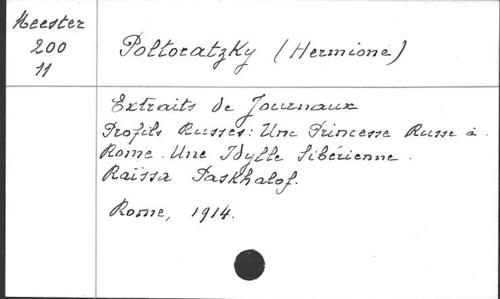 Meester
200
11
Poltoratzky (Hermione)
Extraits de Journaux
Profils Russes: Une Princesse Russe à
Rome. Une Idylle Sibérienne.
Raïssa Paskhalof.
Rome, 1914.